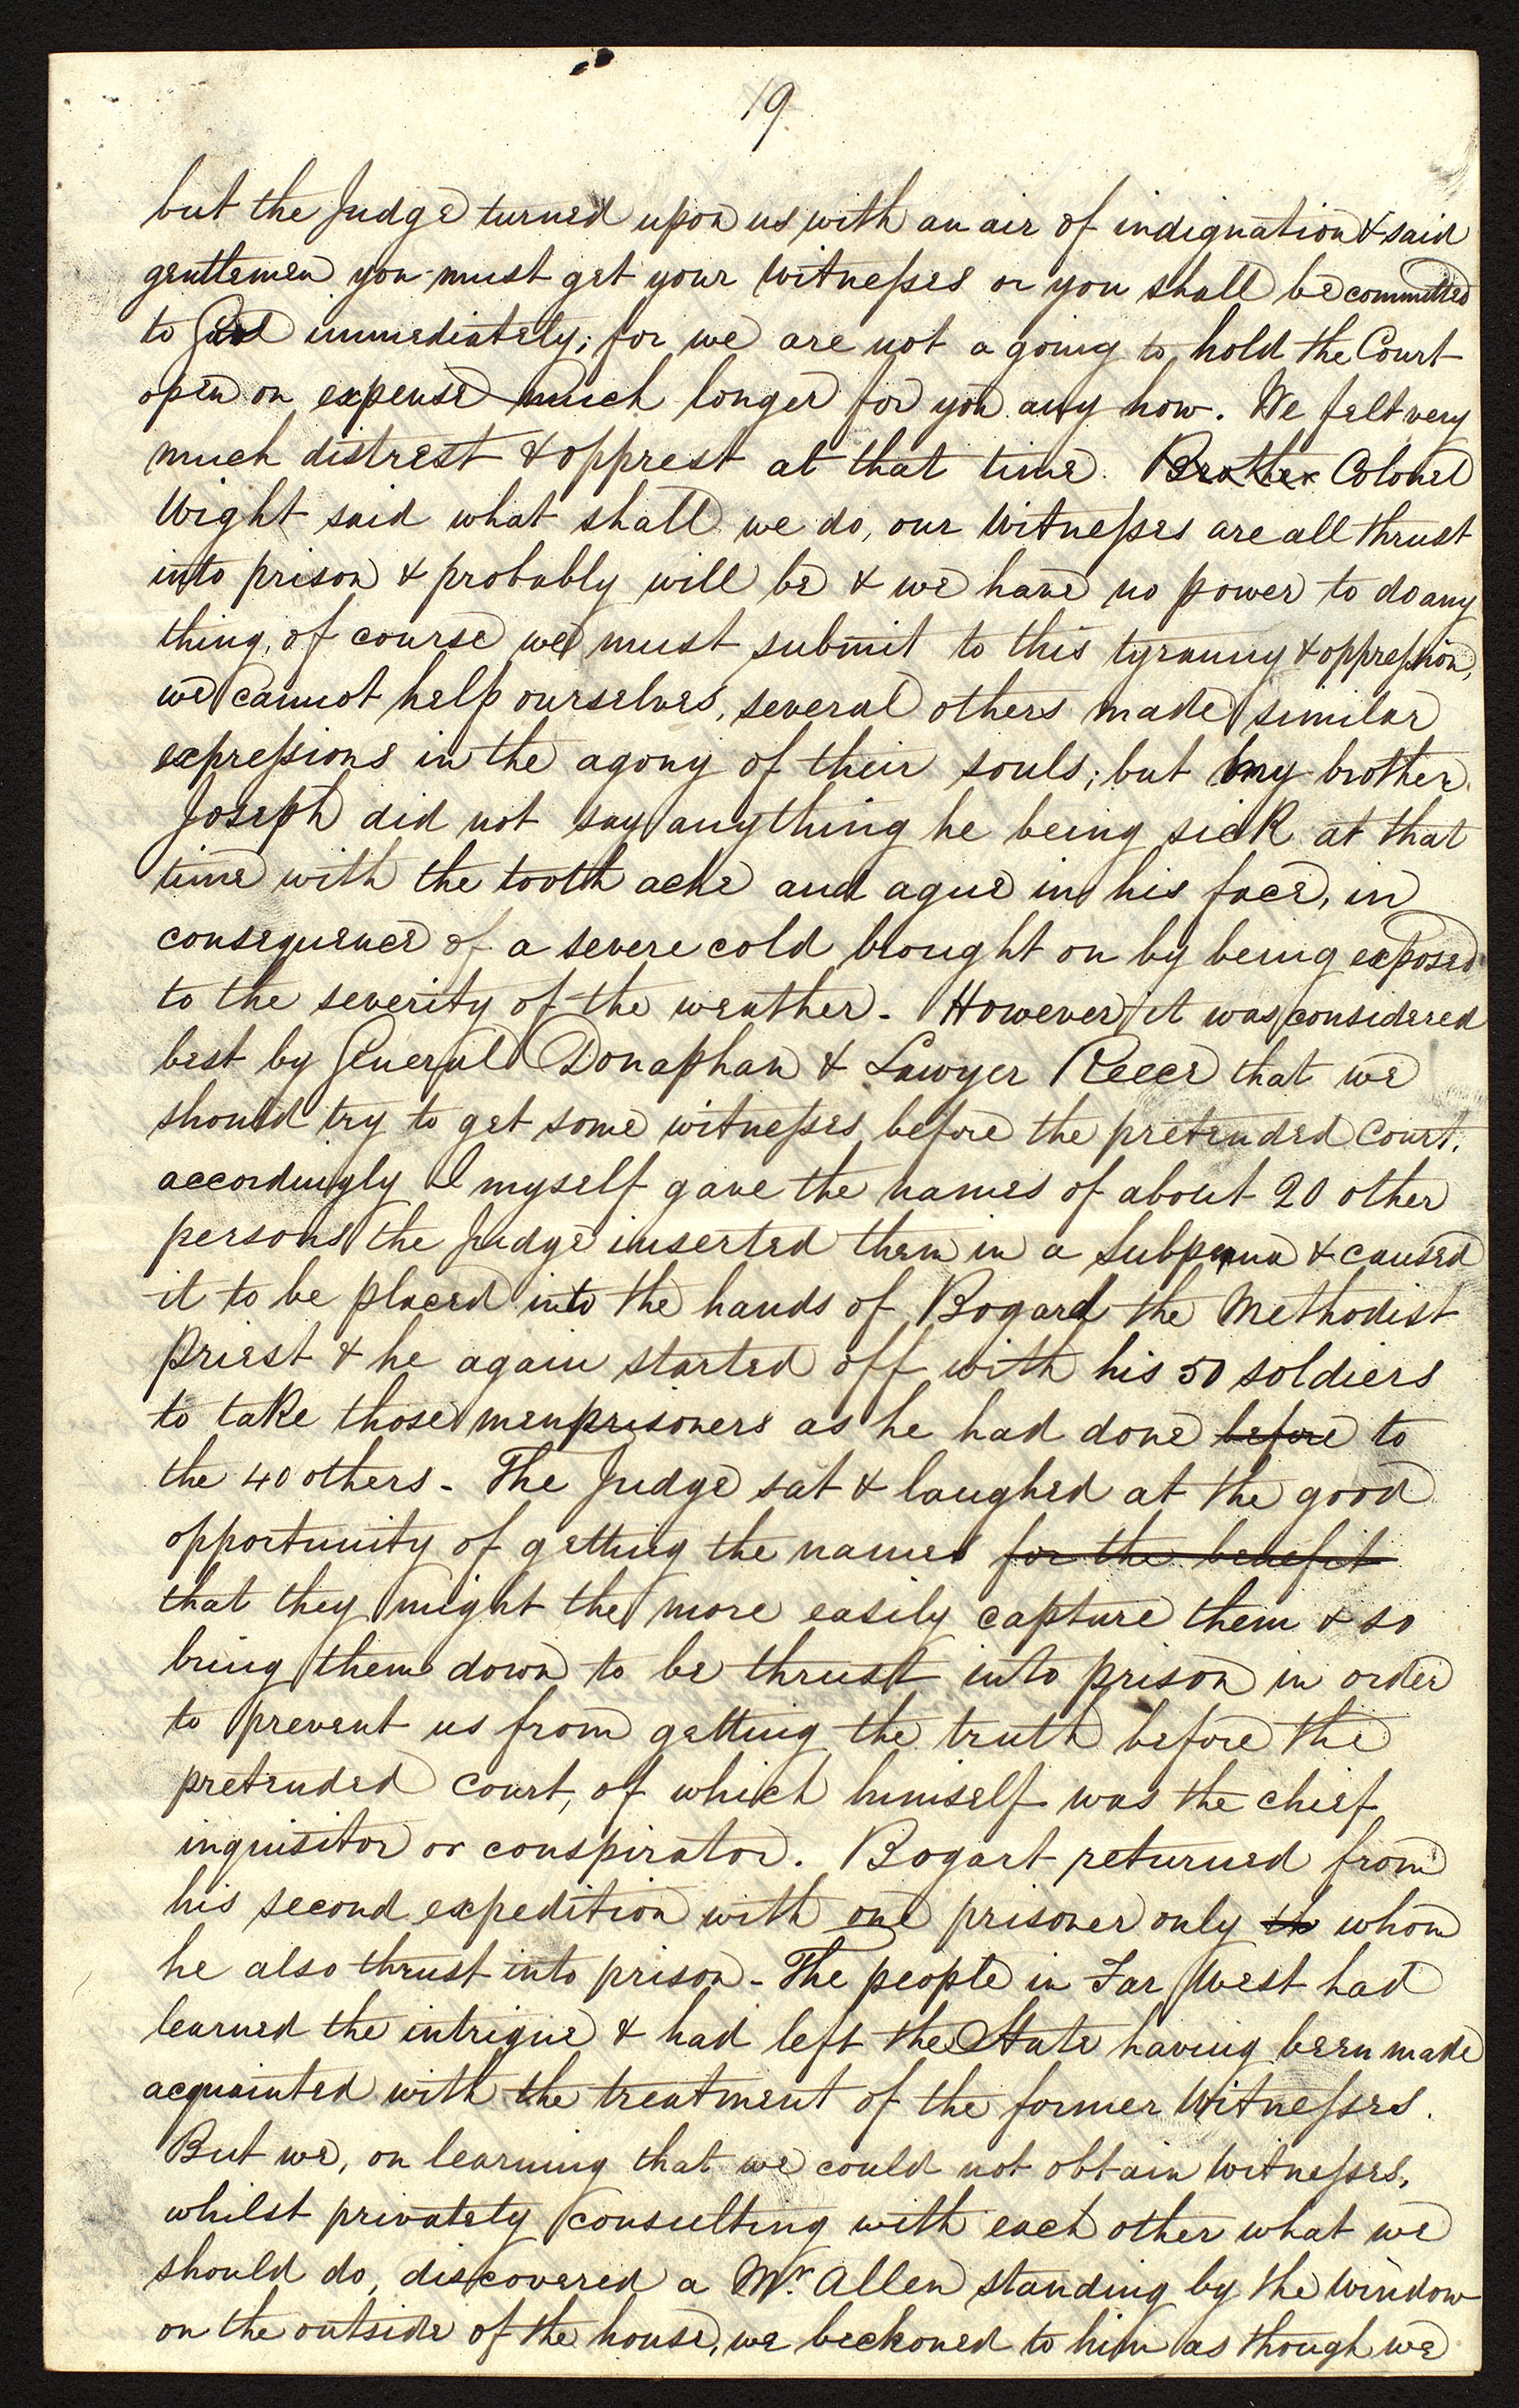 19
but the Judge turned upon us with an air of indignation & said
gentlemen you must get your witnesses or you shall be committed
to Gaol immediately; for we are not a going to hold the Court
open on expense much longer for you any how. We felt very
much distrest & opprest at that time. Brother Colonel
Wight said what shall we do, our Witnesses are all thrust
into prison & probably will be & we have no power to do any
thing, of course we must submit to this tyranny & oppression,
we cannot help ourselves, several others made similar
expressions in the agony of their souls; but my brother
Joseph did not say anything he being sick at that
time with the tooth ache and ague in his face, in
consequence of a severe cold brought on by being exposed
to the severity of the weather. However it was considered
best by General Donaphan & Lawyer Reece that we
should try to get some witnesses before the pretended Court.
accordingly I myself gave the names of about 20 other
persons the Judge inserted them in a Subpena & caused
it to be placed into the hands of Bogard the Methodist
Priest & he again started off with his 50 soldiers
to take those men prisoners as he had done before to
the 40 others - The Judge sat & laughed at the good
opportunity of getting the names for the benefit
that they might the more easily capture them & so
bring them down to be thrust into prison in order
to prevent us from getting the truth before the
pretended court, of which himself was the chief
inquisitor or conspirator. Bogart returned from
his second expedition with one prisoner only th whom
he also thrust into prison - The people in Far West had
learned the intrigue & had left the State having been made
acquainted with the treatment of the former Witnesses.
But we, on learning that we could not obtain Witnesses,
whilst privately consulting with each other what we
should do, discovered a Mr. Allen standing by the window
on the outside of the house, we beckoned to him as though we